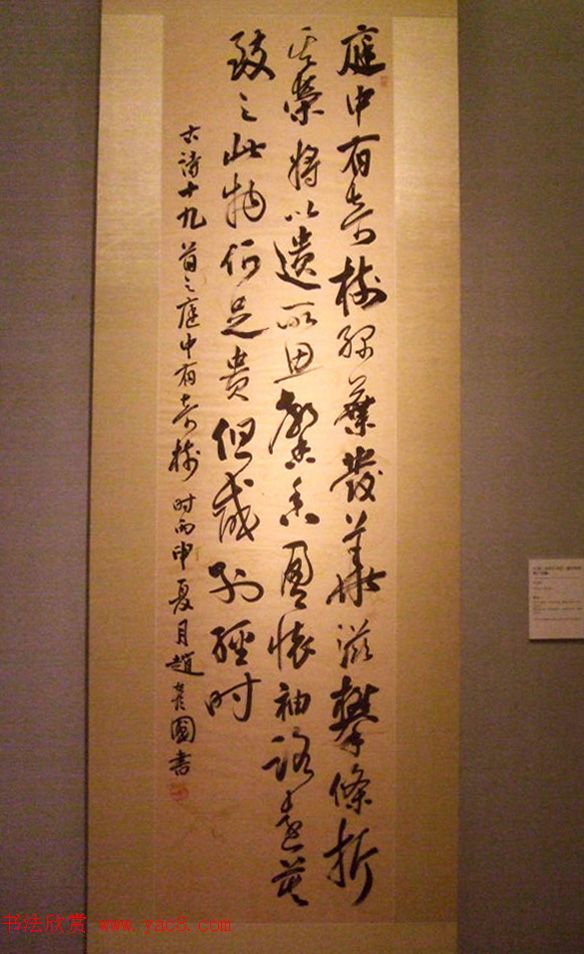 庭中有奇樹綠葉發華滋攀條折
其榮將以遺所思馨香盈懷袖路遠莫
致之此物何足貴但感別經時
古詩十九首之庭中有奇樹 时丙申夏月趙國書
书法欣赏 www.yac8.com